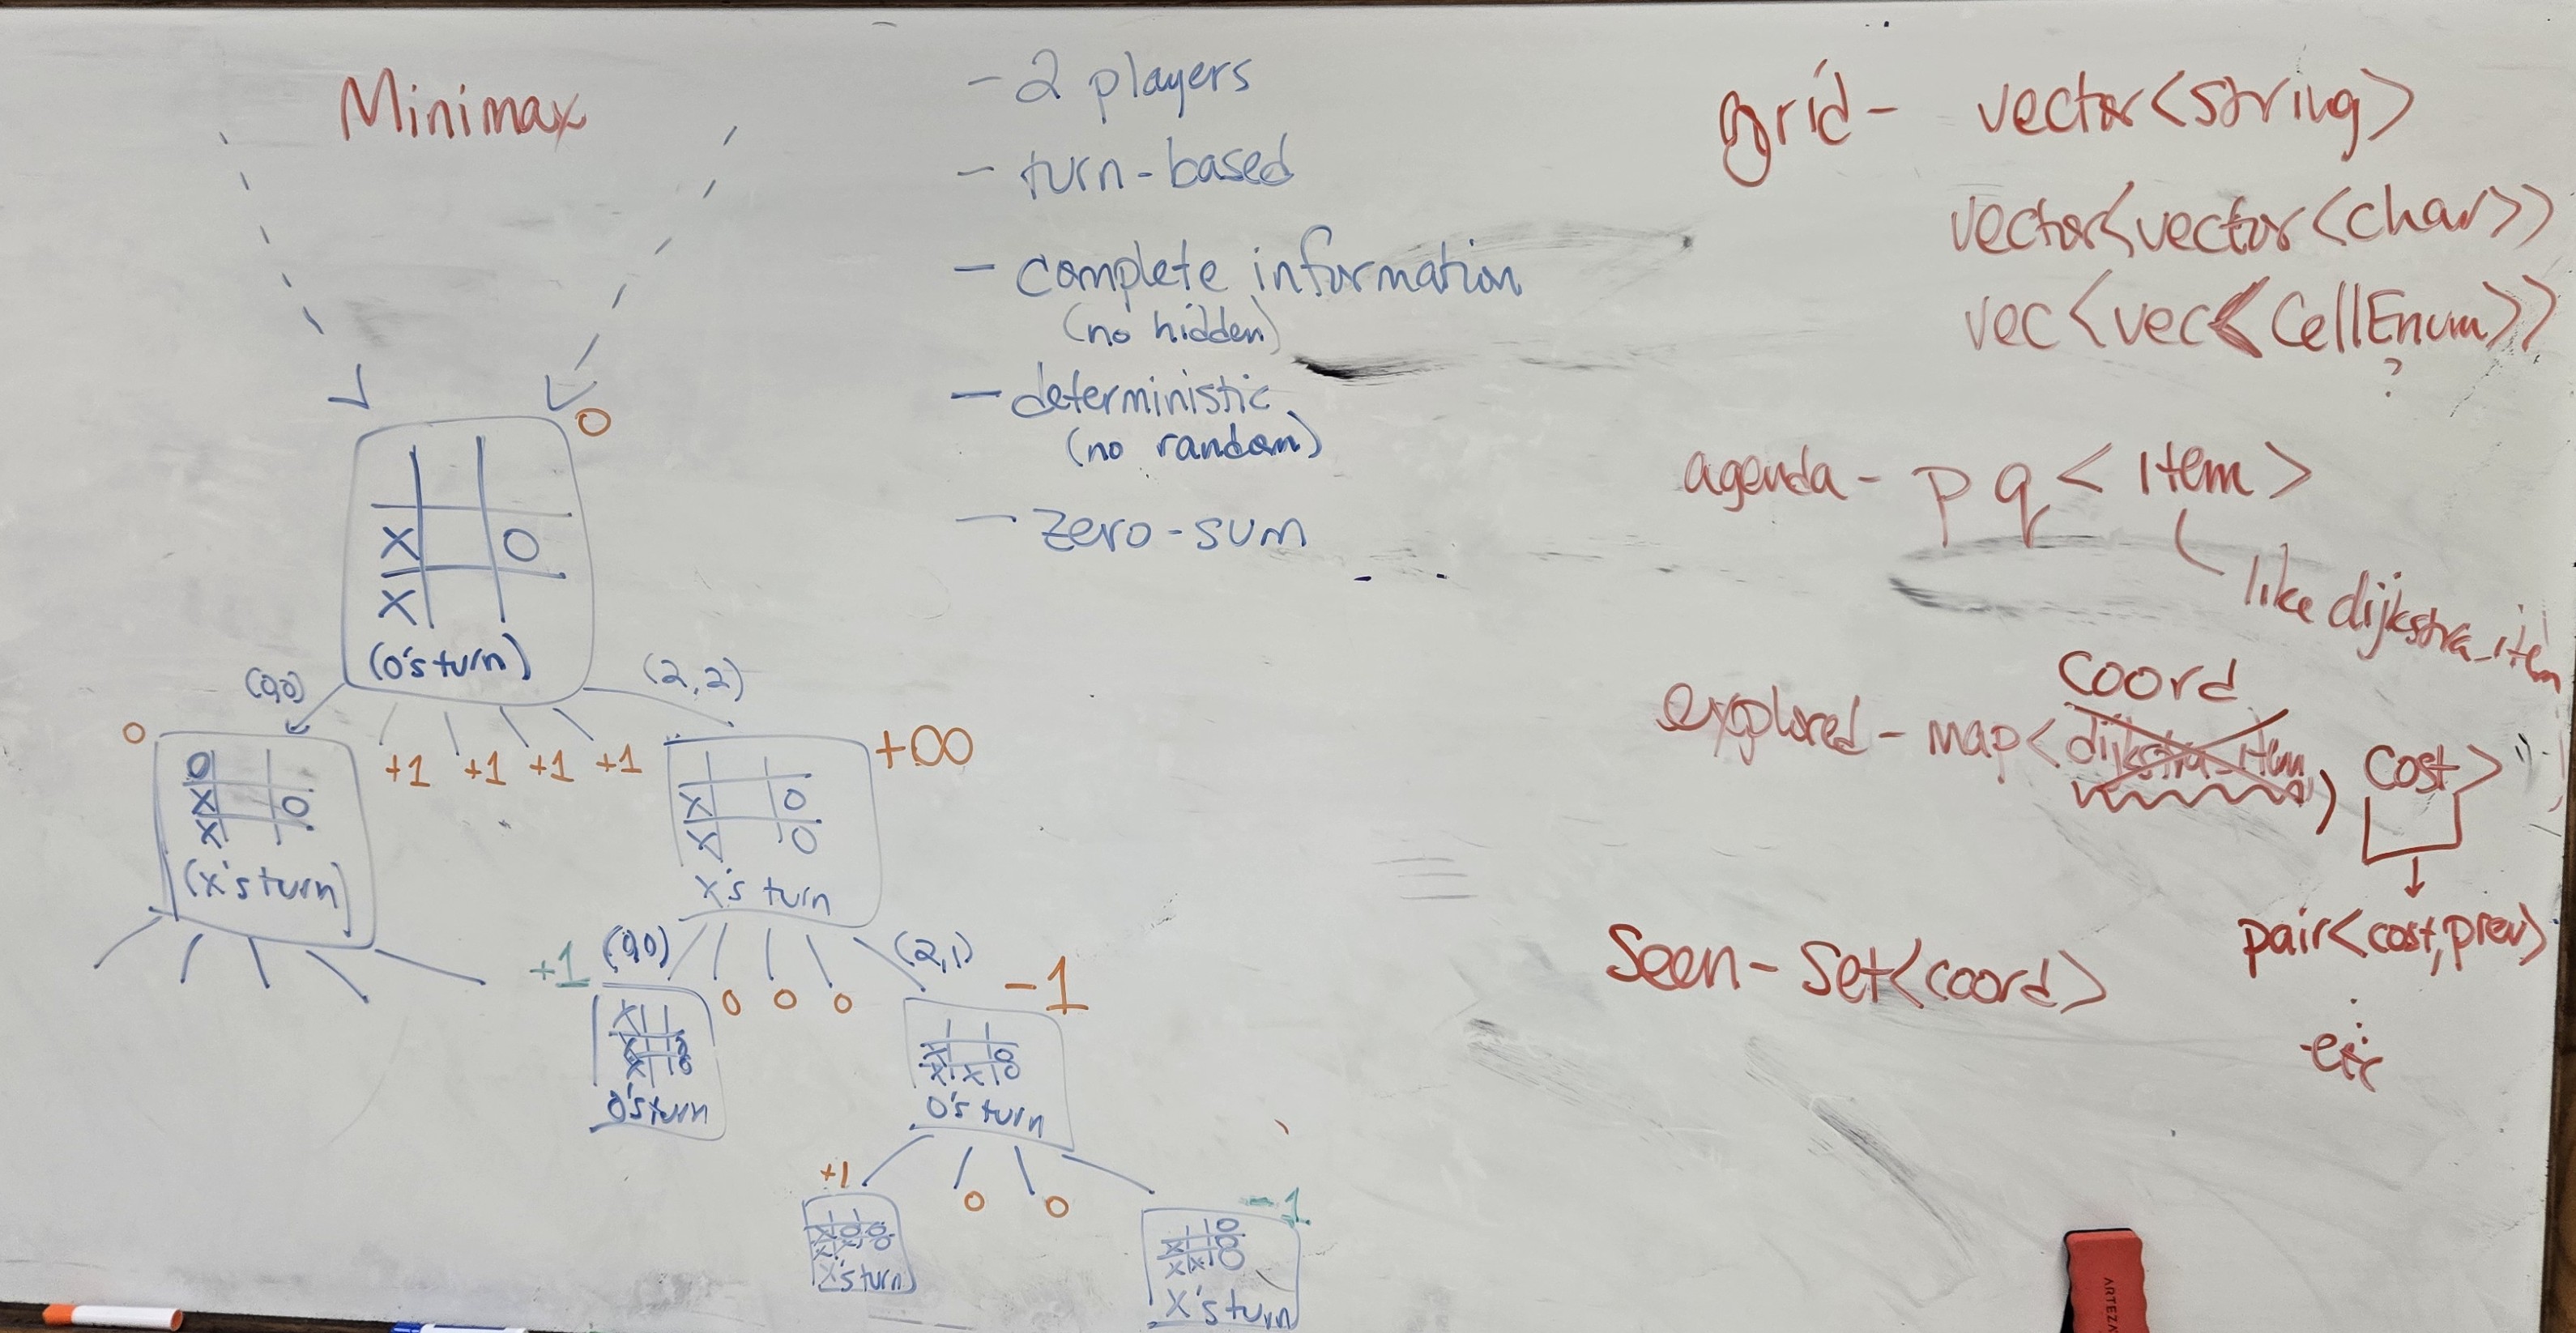 Minimax
- 2 players
- turn-based
- complete information
(no hidden)
- deterministic
(no random)
- zero-sum
0
X O
X
(O's turn)
(0,0)
(2,2)
0
+1 +1 +1 +1
+∞
O
X O
X
(X's turn)
X O
X O
X's turn
+1
(0,0)
0 0 0
(2,1)
-1
X
X O
X O
O's turn
X O
X X O
O's turn
+1
0 0
-1
X O O
X X O
X's turn
O
X O
X X O
X's turn
grid - vector<string>
vector<vector<char>>
vec<vec<CellEnum>>
?
agenda - pq<item>
like dijkstra_item
coord
explored - map<dijkstra_item, cost>
pair<cost,prev>
etc
seen - set<coord>
ARTEZA